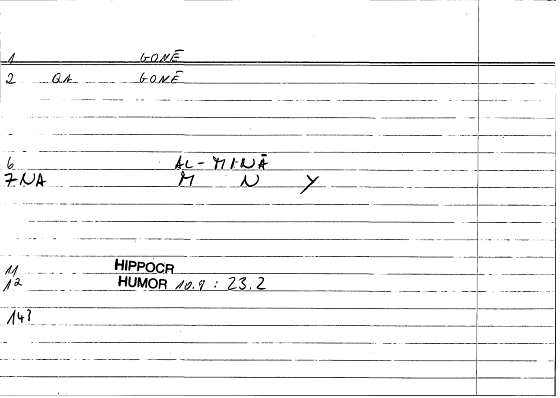 1 GONĒ
2 QA GONĒ
6 AL-MINĀ
7 NA M N Y
11 HIPPOCR
12 HUMOR 10.9 : 23.2
14?